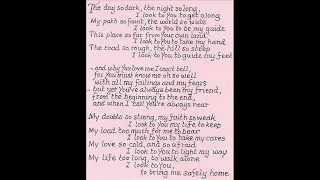 The day so dark, the night so long,
I look to You to get along
My path so faint, the world so wide
I look to You to be my guide
This place so far from Your own land
I look to You to take my hand
The road so rough, the hill so steep
I look to You to guide my feet
- and why You love me I can't tell,
for You must know me oh so well
with all my failings and my fears
- but yet You've always been my friend,
from the beginning to the end,
and when I call You're always near
My doubts so strong, my faith so weak
I look to You my life to keep
My load too much for me to bear
I look to You to take my cares
My love so cold, and so afraid
I look to You to light my way
My life too long, to walk alone
I look to You,
to bring me safely home